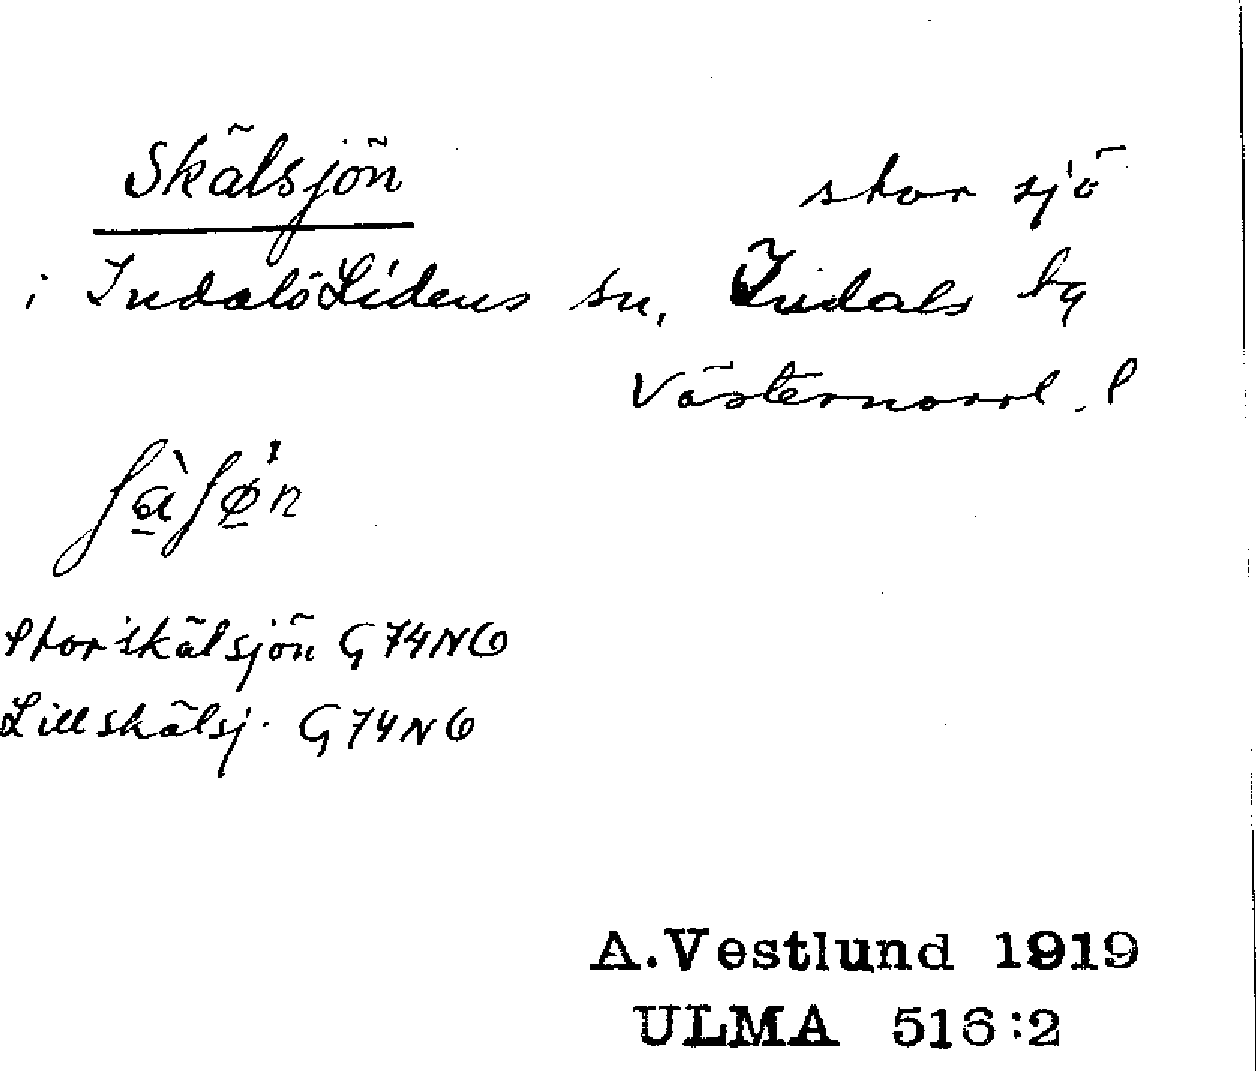 Skälsjön stor sjö
i Indals Lidens sn, Indals by
Västernorrl. l
Storskälsjön G74NO
Lillskälsj. G74NO
A. Vestlund 1919
ULMA 516:2